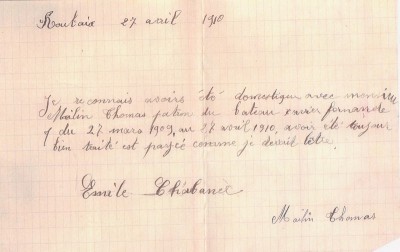 Roubaix 27 avril 1910
Je reconnais avoirs été domestique avec
Malin Thomas patron du bateau
du 27 mars 1909, au 27 avril 1910, avoir été toujour
bien traité est payée comme je devait l'être
Emile
Malin Thomas